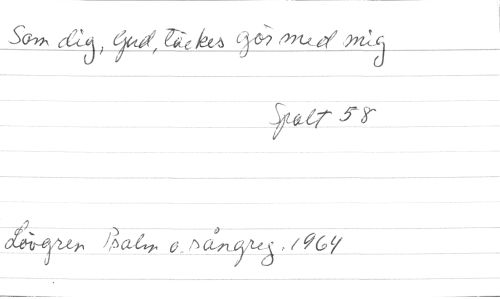 Som dig, Gud, täckes gör med mig
Spalt 58
Lövgren Psalm o. sångreg. 1964